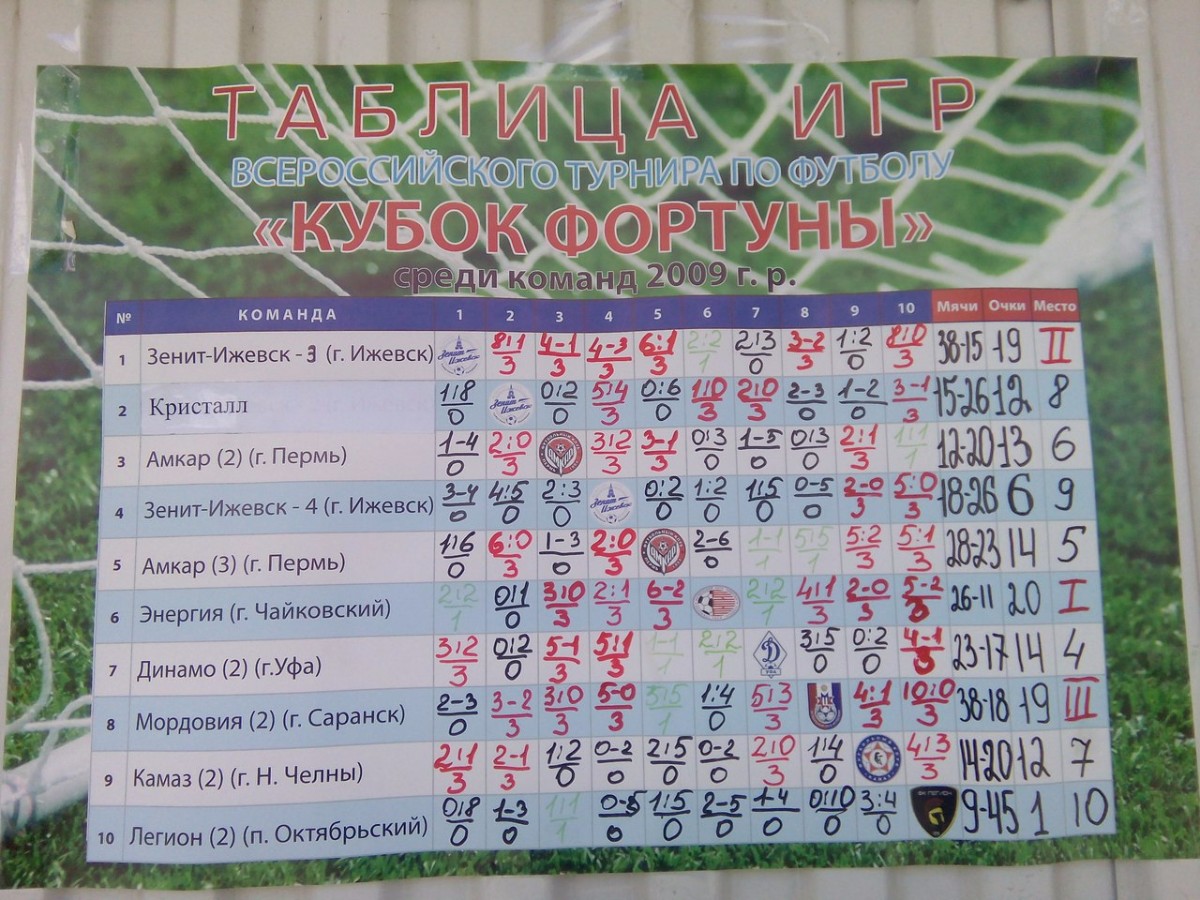 ТАБЛИЦА ИГР
ВСЕРОССИЙСКОГО ТУРНИРА ПО ФУТБОЛУ
«КУБОК ФОРТУНЫ»
среди команд 2009 г. р.
№ КОМАНДА 1 2 3 4 5 6 7 8 9 10 Мячи Очки Место
1 Зенит-Ижевск - 3 (г. Ижевск) Зенит Ижевск 8:1 3 4-1 3 4-3 3 6:1 3 2:2 1 2:3 0 3-2 3 1:2 0 8:0 3 38-15 19 II
2 Кристалл 1:8 0 Зенит Ижевск 0:2 0 5:4 3 0:6 0 1:0 3 2:0 3 2-3 0 1-2 0 3-1 3 15-26 12 8
3 Амкар (2) (г. Пермь) 1-4 0 2:0 3 3:2 3 3-1 3 0:3 0 1-5 0 0:3 0 2:1 3 1:1 1 12-20 13 6
4 Зенит-Ижевск - 4 (г. Ижевск) 3-4 0 4:5 0 2:3 0 Зенит Ижевск 0:2 0 1:2 0 1:5 0 0-5 0 2-0 3 5:0 3 18-26 6 9
5 Амкар (3) (г. Пермь) 1:6 0 6:0 3 1-3 0 2:0 3 2-6 0 1-1 1 5:5 1 5:2 3 5:1 3 28-23 14 5
6 Энергия (г. Чайковский) 2:2 1 0:1 0 3:0 3 2:1 3 6-2 3 2:2 1 4:1 3 2-0 3 5-2 3 26-11 20 I
7 Динамо (2) (г.Уфа) 3:2 3 0:2 0 5-1 3 5:1 3 1-1 1 2:2 1 Д УФА 3:5 0 0:2 0 4-1 3 23-17 14 4
8 Мордовия (2) (г. Саранск) 2-3 0 3-2 3 3:0 3 5-0 3 5:5 1 1:4 0 5:3 3 4:1 3 10:0 3 38-18 19 III
9 Камаз (2) (г. Н. Челны) 2:1 3 2-1 3 1:2 0 0-2 0 2:5 0 0-2 0 2:0 3 1:4 0 4:3 3 14-20 12 7
10 Легион (2) (п. Октябрьский) 0:8 0 1-3 0 1:1 1 0-5 0 1:5 0 2-5 0 1-4 0 0:10 0 3:4 0 ФК ЛЕГИОН 9-45 1 10